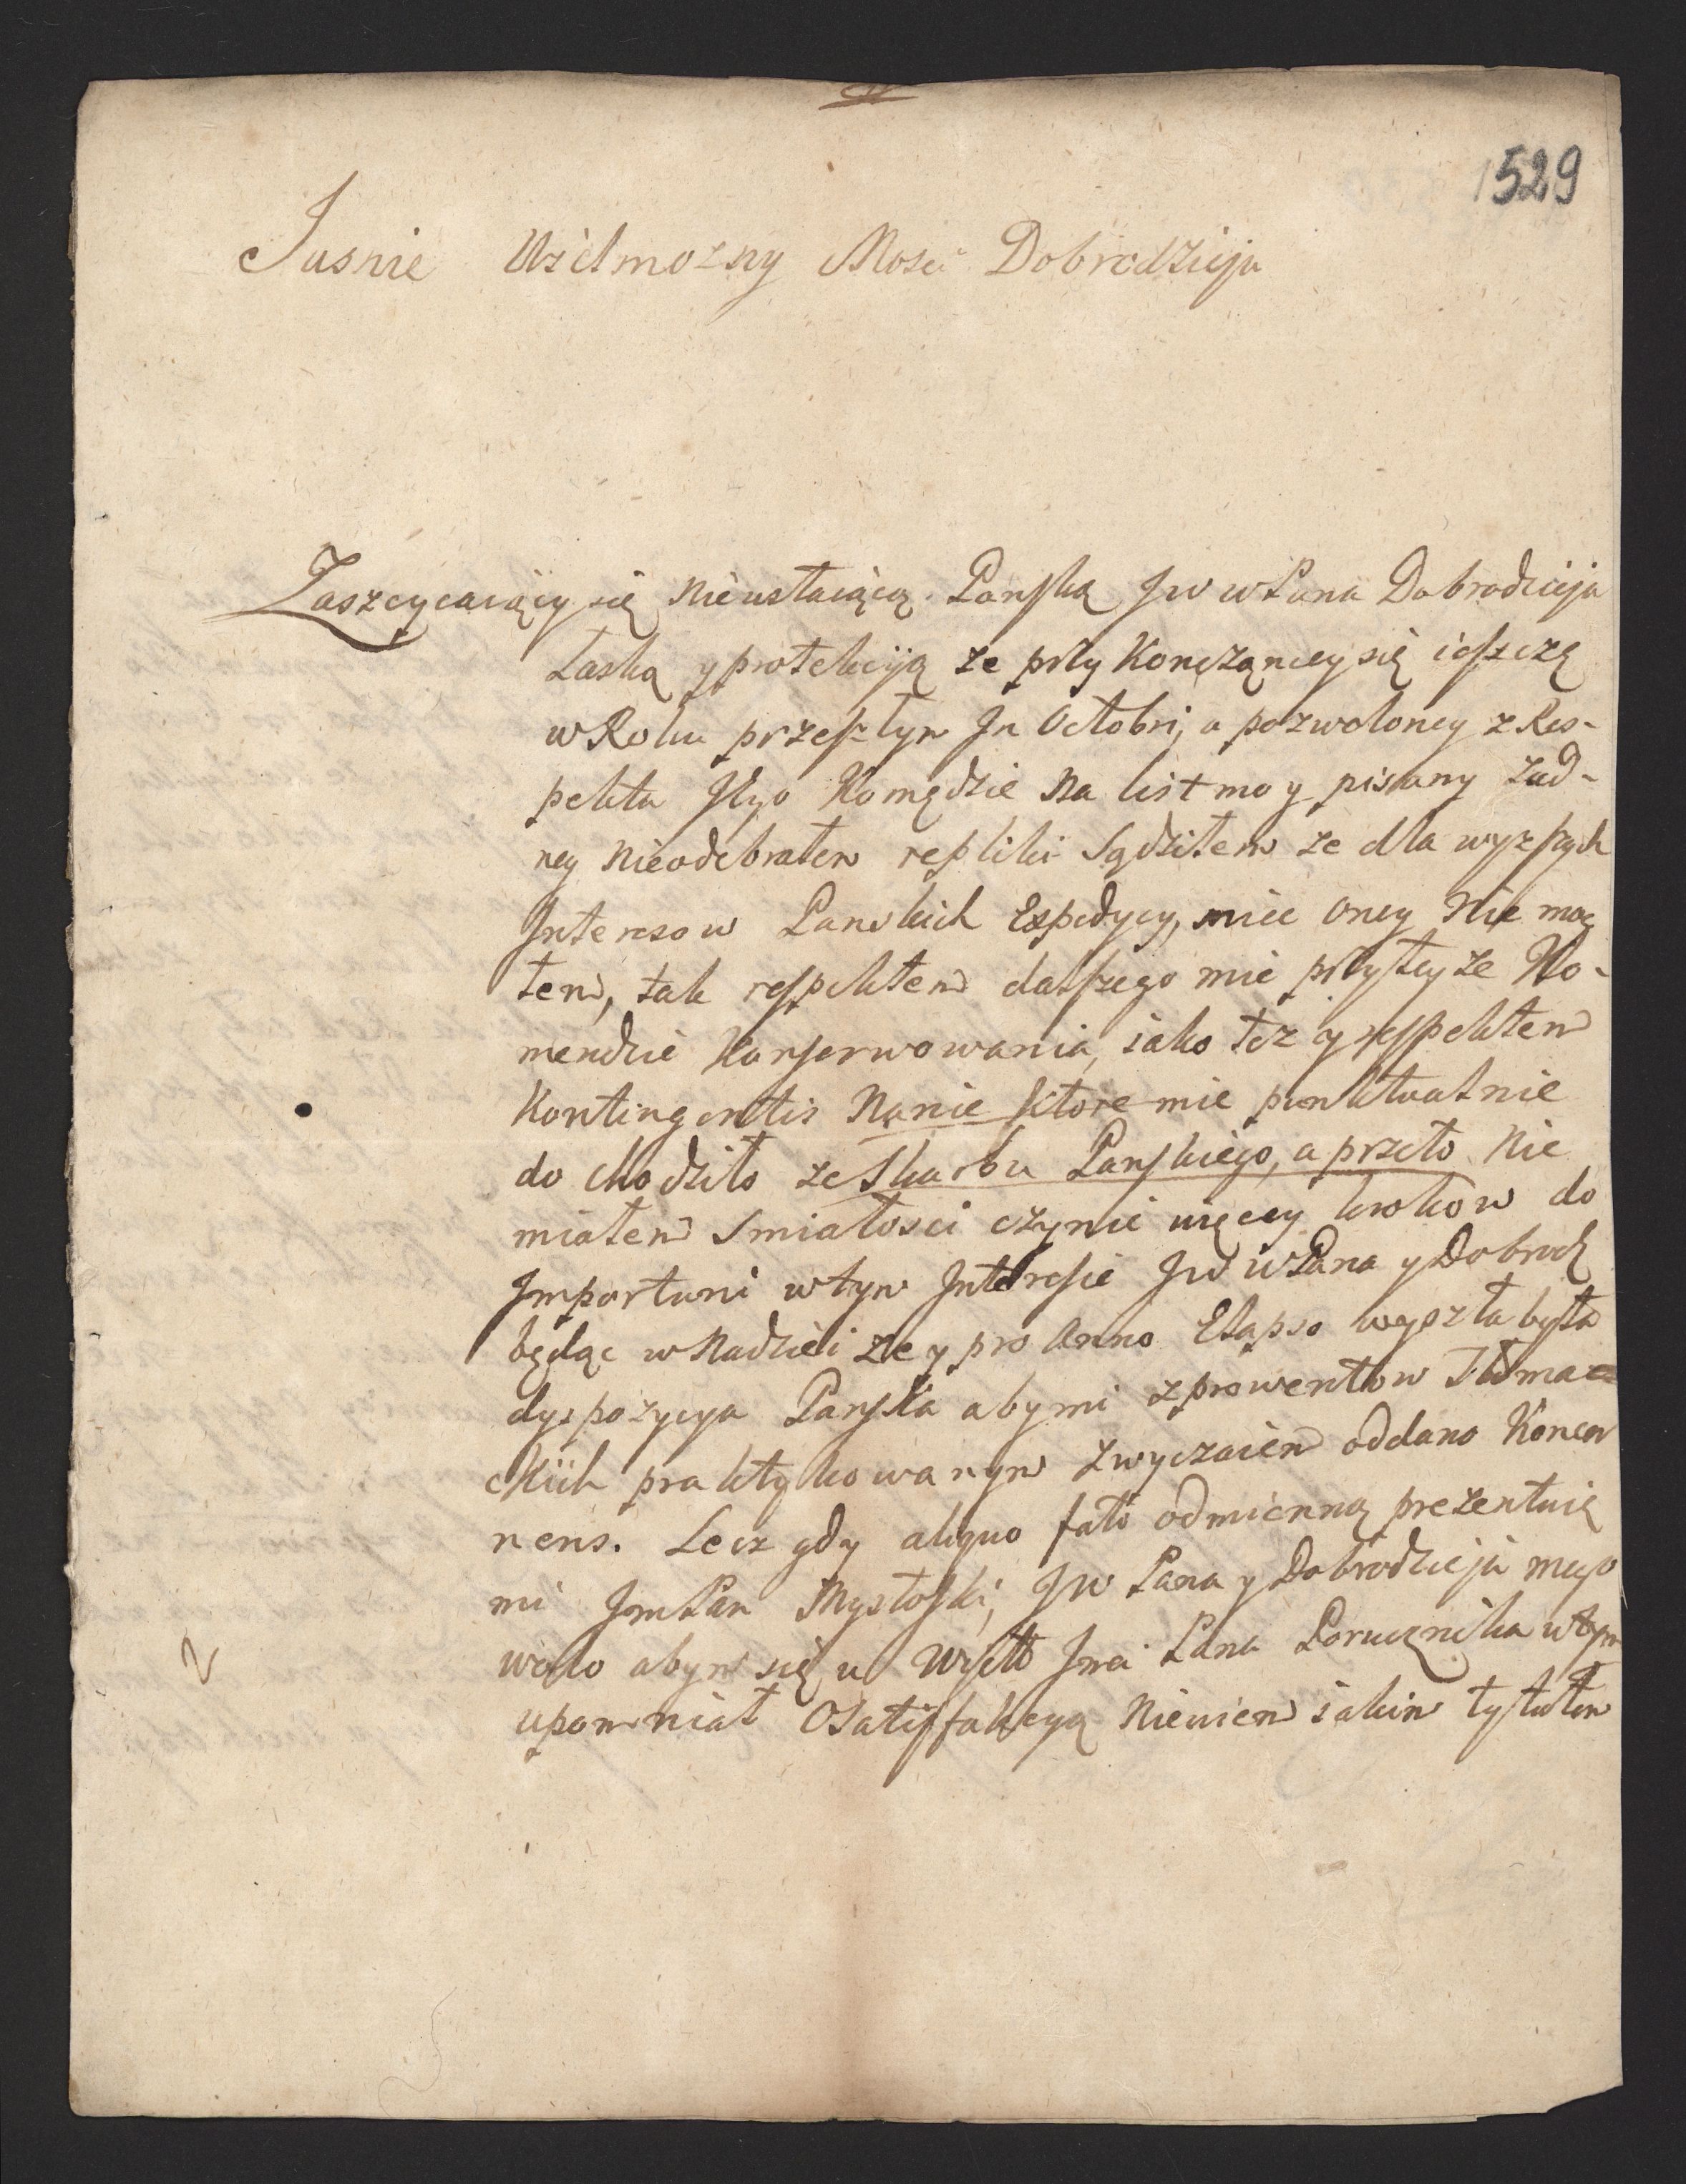 1529
Jasnie Wielmozny Mosci Dobrodzieja
Zaszcycaiący się nieustaiącą Panską JW wPana Dobrodzieja
Łaską y protekcyją ze przy Konczącney się ieszczę
w Roku przeszłym In Octobri, a pozwoloney z Res-
pektu Jego Komędzie na list moy pisany zad-
ney nieodebrałem repliki Sądziłem ze dla wyzszych
Interesow Panskich Expedycy, miec oney nie mog
łem, tak respektem dalszego mie przytey ze Ko-
mendzie Konserwowania, iako tez y respektem
Kontingentis Nanie ktore mie punktualnie
do chodziło ze Skarbu Panskiego, a przeto nie
miałem Smiałosci czynic więcey krokow do
Importuni wtym Interesie JW wPana y Dobrodz
będąc w Nadziei ze y pro Anno Elapso wyszła była
dyspozycya Panska aby mi z prowentow Tłmac
ckich praktykowanym zwyczaiem oddano Koncer
nens. Lecz gdy aliquo fato odmienną prezentuię
mi JmPan Mysłoski, JW Pana y Dobrodzieja mego
wolo abym się u Jmci Pana Porucznika wtym
upomniał OSatisfakcyą niewiem iakim tytułem
2